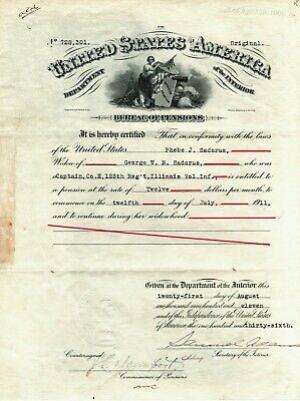 No 728,301. Original.
UNITED STATES OF AMERICA
DEPARTMENT of the INTERIOR
BUREAU OF PENSIONS
It is hereby certified That in conformity with the laws
of the United States Phebe J. Sadorus,
Widow of George W. B. Sadorus, who was
a Captain, Co.E, 125th Reg't, Illinois Vol.Inf. is entitled to
a pension at the rate of Twelve dollars per month, to
commence on the twelfth day of July, 1911,
and to continue during her widowhood
Given at the Department of the Interior this
twenty-first day of August
one thousand nine hundred and eleven
and of the Independence of the United States
of America the one hundred and thirty-sixth.
Secretary of the Interior
Countersigned,
Commissioner of Pensions